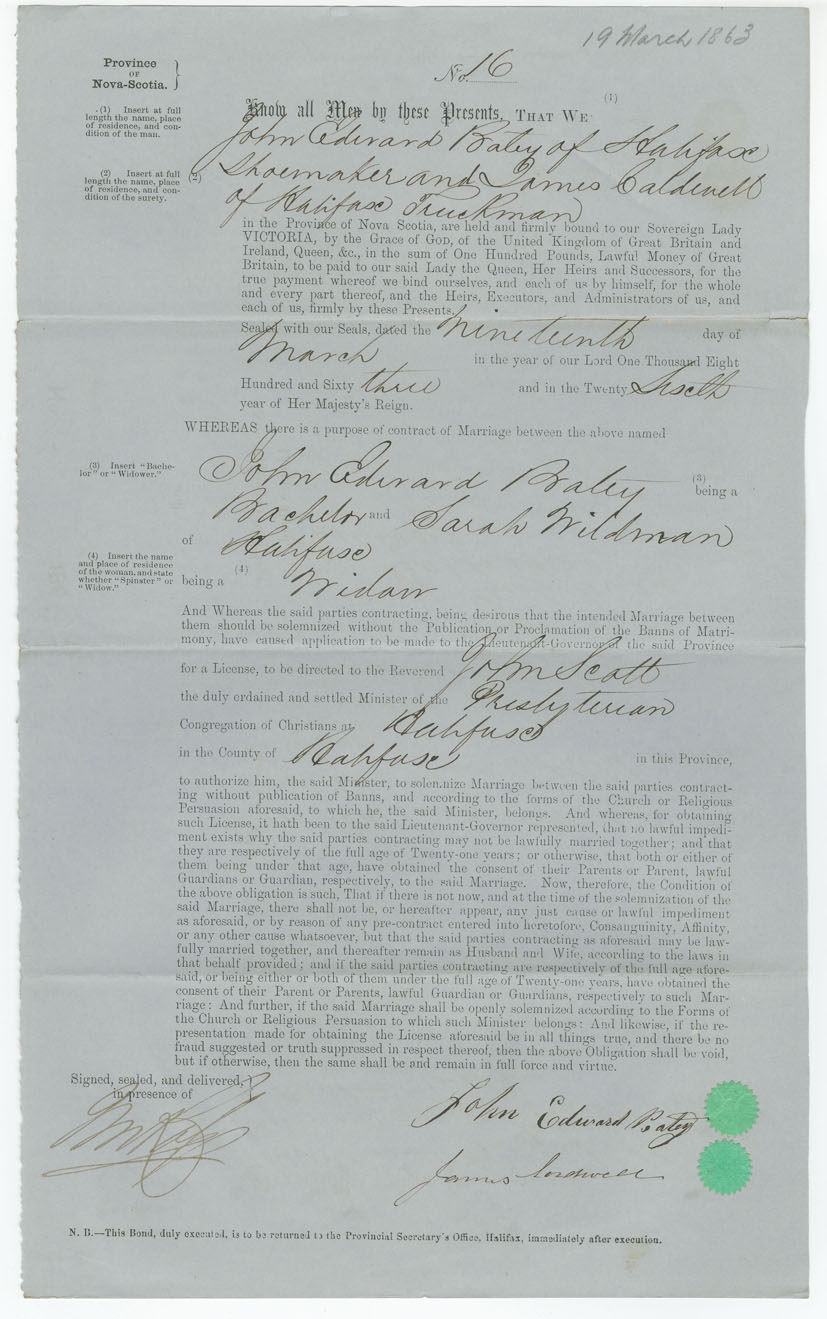 19 March 1863
Province
OF
Nova-Scotia.
No. 16
(1) Insert at full
length the name, place
of residence, and con-
dition of the man.
Know all Men by these Presents, THAT WE (1)
John Edward Batey of Halifax
(2) Insert at full
length the name, place
of residence, and con-
dition of the surety.
(2) Shoemaker and James Caldwell
of Halifax Truckman
in the Province of Nova Scotia, are held and firmly bound to our Sovereign Lady
VICTORIA, by the Grace of GOD, of the United Kingdom of Great Britain and
Ireland, Queen, &c., in the sum of One Hundred Pounds, Lawful Money of Great
Britain, to be paid to our said Lady the Queen, Her Heirs and Successors, for the
true payment whereof we bind ourselves, and each of us by himself, for the whole
and every part thereof, and the Heirs, Executors, and Administrators of us, and
each of us, firmly by these Presents.
Sealed with our Seals, dated the Nineteenth day of
March in the year of our Lord One Thousand Eight
Hundred and Sixty three and in the Twenty Sixth
year of Her Majesty's Reign.
WHEREAS there is a purpose of contract of Marriage between the above named
(3) Insert "Bache-
lor" or "Widower."
John Edward Batey (3) being a
Bachelor and Sarah Wildman
of Halifax
(4) Insert the name
and place of residence
of the woman, and state
whether "Spinster" or
"Widow."
being a (4) Widow
And Whereas the said parties contracting, being desirous that the intended Marriage between
them should be solemnized without the Publication or Proclamation of the Banns of Matri-
mony, have caused application to be made to the Lieutenant-Governor of the said Province
for a License, to be directed to the Reverend John Scott
the duly ordained and settled Minister of the Presbyterian
Congregation of Christians at Halifax
in the County of Halifax in this Province,
to authorize him, the said Minister, to solemnize Marriage between the said parties contract-
ing without publication of Banns, and according to the forms of the Church or Religious
Persuasion aforesaid, to which he, the said Minister, belongs. And whereas, for obtaining
such License, it hath been to the said Lieutenant-Governor represented, that no lawful impedi-
ment exists why the said parties contracting may not be lawfully married together; and that
they are respectively of the full age of Twenty-one years; or otherwise, that both or either of
them being under that age, have obtained the consent of their Parents or Parent, lawful
Guardians or Guardian, respectively, to the said Marriage. Now, therefore, the Condition of
the above obligation is such, That if there is not now, and at the time of the solemnization of the
said Marriage, there shall not be, or hereafter appear, any just cause or lawful impediment
as aforesaid, or by reason of any pre-contract entered into heretofore, Consanguinity, Affinity,
or any other cause whatsoever, but that the said parties contracting as aforesaid may be law-
fully married together, and thereafter remain as Husband and Wife, according to the laws in
that behalf provided; and if the said parties contracting are respectively of the full age afore-
said, or being either or both of them under the full age of Twenty-one years, have obtained the
consent of their Parent or Parents, lawful Guardian or Guardians, respectively to such Mar-
riage: And further, if the said Marriage shall be openly solemnized according to the Forms of
the Church or Religious Persuasion to which such Minister belongs: And likewise, if the re-
presentation made for obtaining the License aforesaid be in all things true, and there be no
fraud suggested or truth suppressed in respect thereof, then the above Obligation shall be void,
but if otherwise, then the same shall be and remain in full force and virtue.
Signed, sealed, and delivered,
in presence of
John Edward Batey
James
N. B.—This Bond, duly executed, is to be returned to the Provincial Secretary's Office, Halifax, immediately after execution.